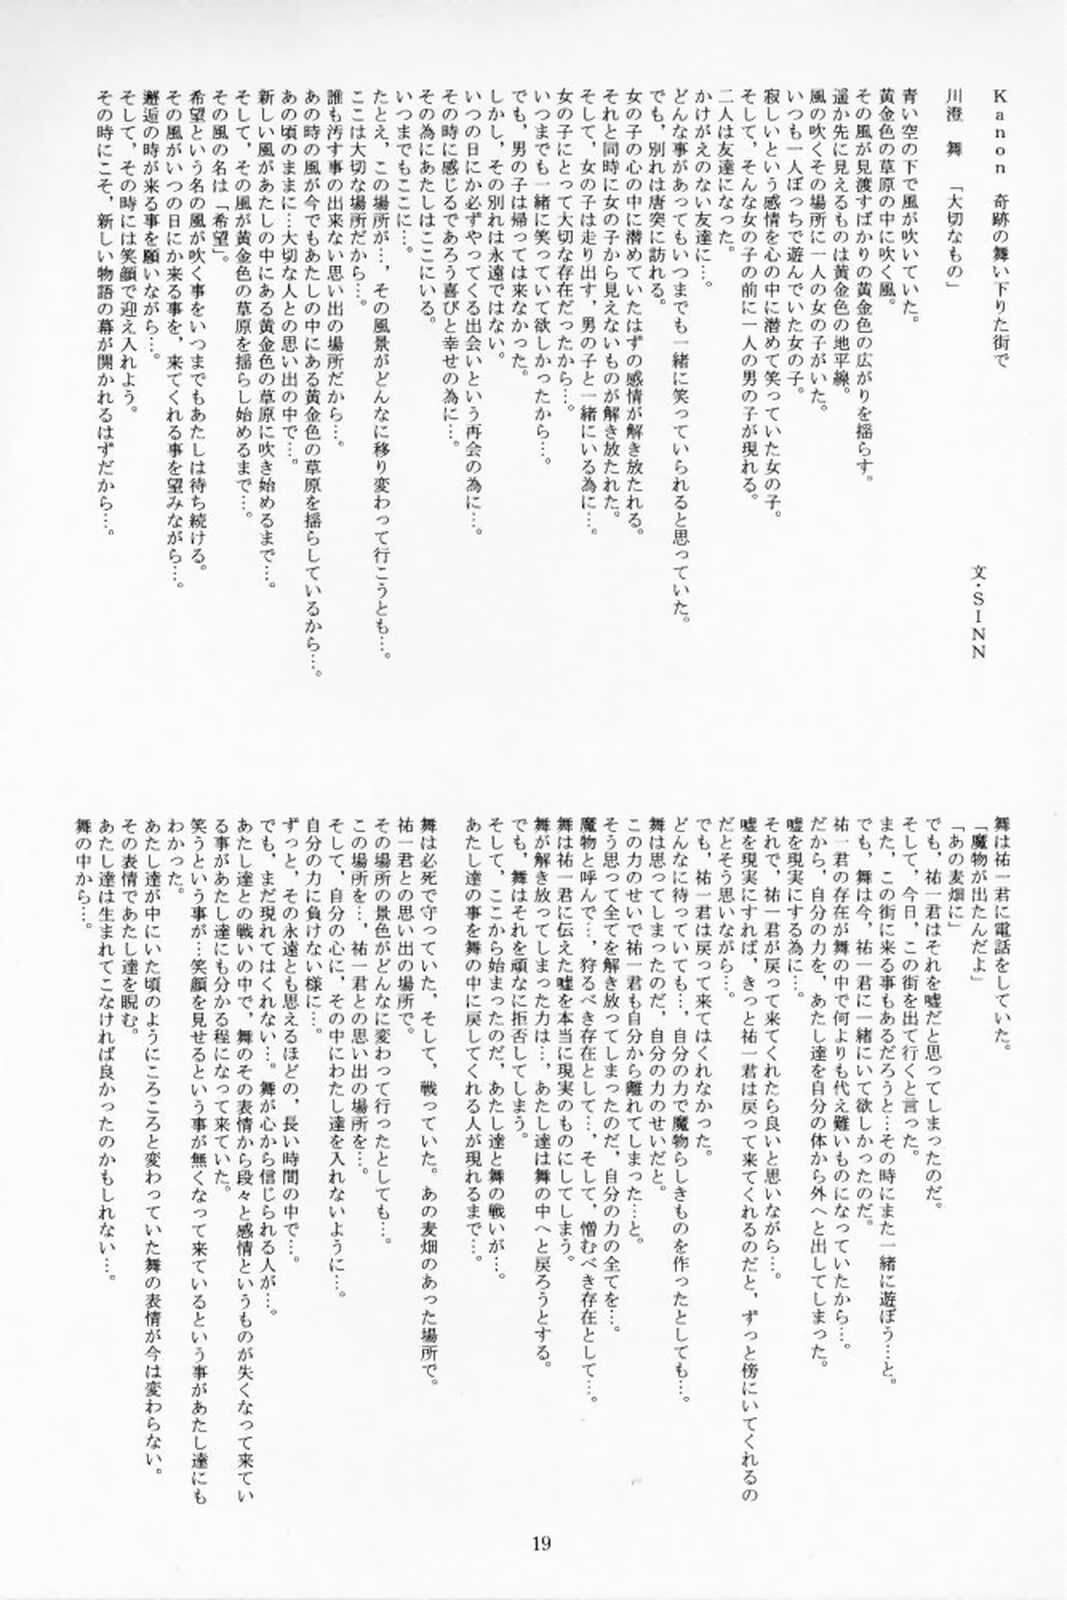 Kanon 奇跡の舞い下りた街で
文・SINN
川澄 舞 「大切なもの」
青い空の下で風が吹いていた。
黄金色の草原の中に吹く風。
その風が見渡すばかりの黄金色の広がりを揺らす。
遥か先に見えるものは黄金色の地平線。
風の吹くその場所に一人の女の子がいた。
いつも一人ぼっちで遊んでいた女の子。
寂しいという感情を心の中に潜めて笑っていた女の子。
そして、そんな女の子の前に一人の男の子が現れる。
二人は友達になった。
かけがえのない友達に…。
どんな事があってもいつまでも一緒に笑っていられると思っていた。
でも、別れは唐突に訪れる。
女の子の心の中に潜めていたはずの感情が解き放たれる。
それと同時に女の子から見えないものが解き放たれた。
そして、女の子は走り出す、男の子と一緒にいる為に…。
女の子にとって大切な存在だったから…。
いつまでも一緒に笑っていて欲しかったから…。
でも、男の子は帰っては来なかった。
しかし、その別れは永遠ではない。
いつの日にか必ずやってくる出会いという再会の為に…。
その時に感じるであろう喜びと幸せの為に…。
その為にあたしはここにいる。
いつまでもここに…。
たとえ、この場所が…、その風景がどんなに移り変わって行こうとも…。
ここは大切な場所だから…。
誰も汚す事の出来ない思い出の場所だから…。
あの時の風が今でもあたしの中にある黄金色の草原を揺らしているから…。
あの頃のままに…大切な人との思い出の中で…。
新しい風があたしの中にある黄金色の草原に吹き始めるまで…。
そして、その風が黄金色の草原を揺らし始めるまで…。
その風の名は「希望」。
希望という名の風が吹く事をいつまでもあたしは待ち続ける。
その風がいつの日にか来る事を、来てくれる事を望みながら…。
邂逅の時が来る事を願いながら…。
そして、その時には笑顔で迎え入れよう。
その時にこそ、新しい物語の幕が開かれるはずだから…。
舞は祐一君に電話をしていた。
「魔物が出たんだよ」
「あの麦畑に」
でも、祐一君はそれを嘘だと思ってしまったのだ。
そして、今日、この街を出て行くと言った。
また、この街に来る事もあるだろうと…その時にまた一緒に遊ぼう…と。
でも、舞は今、祐一君に一緒にいて欲しかったのだ。
祐一君の存在が舞の中で何よりも代え難いものになっていたから…。
だから、自分の力を、あたし達を自分の体から外へと出してしまった。
嘘を現実にする為に…。
それで、祐一君が戻って来てくれたら良いと思いながら…。
嘘を現実にすれば、きっと祐一君は戻って来てくれるのだと、ずっと傍にいてくれるの
だとそう思いながら…。
でも、祐一君は戻って来てはくれなかった。
どんなに待っていても…、自分の力で魔物らしきものを作ったとしても…。
舞は思ってしまったのだ、自分の力のせいだと。
この力のせいで祐一君も自分から離れてしまった…と。
そう思って全てを解き放ってしまったのだ、自分の力の全てを…。
魔物と呼んで…、狩るべき存在として…、そして、憎むべき存在として…。
舞は祐一君に伝えた嘘を本当に現実のものにしてしまう。
舞が解き放ってしまった力は…、あたし達は舞の中へと戻ろうとする。
でも、舞はそれを頑なに拒否してしまう。
そして、ここから始まったのだ、あたし達と舞の戦いが…。
あたし達の事を舞の中に戻してくれる人が現れるまで…。
舞は必死で守っていた、そして、戦っていた。あの麦畑のあった場所で。
祐一君との思い出の場所で。
その場所の景色がどんなに変わって行ったとしても…。
この場所を…、祐一君との思い出の場所を…。
そして、自分の心に、その中にわたし達を入れないように…。
自分の力に負けない様に…。
ずっと、その永遠とも思えるほどの、長い時間の中で…。
でも、まだ現れてはくれない…。舞が心から信じられる人が…。
あたし達との戦いの中で、舞のその表情から段々と感情というものが失くなって来てい
る事があたし達にも分かる程になって来ていた。
笑うという事が…笑顔を見せるという事が無くなって来ているという事があたし達にも
わかった。
あたし達が中にいた頃のようにころころと変わっていた舞の表情が今は変わらない。
その表情であたし達を睨む。
あたし達は生まれてこなければ良かったのかもしれない…。
舞の中から…。
19